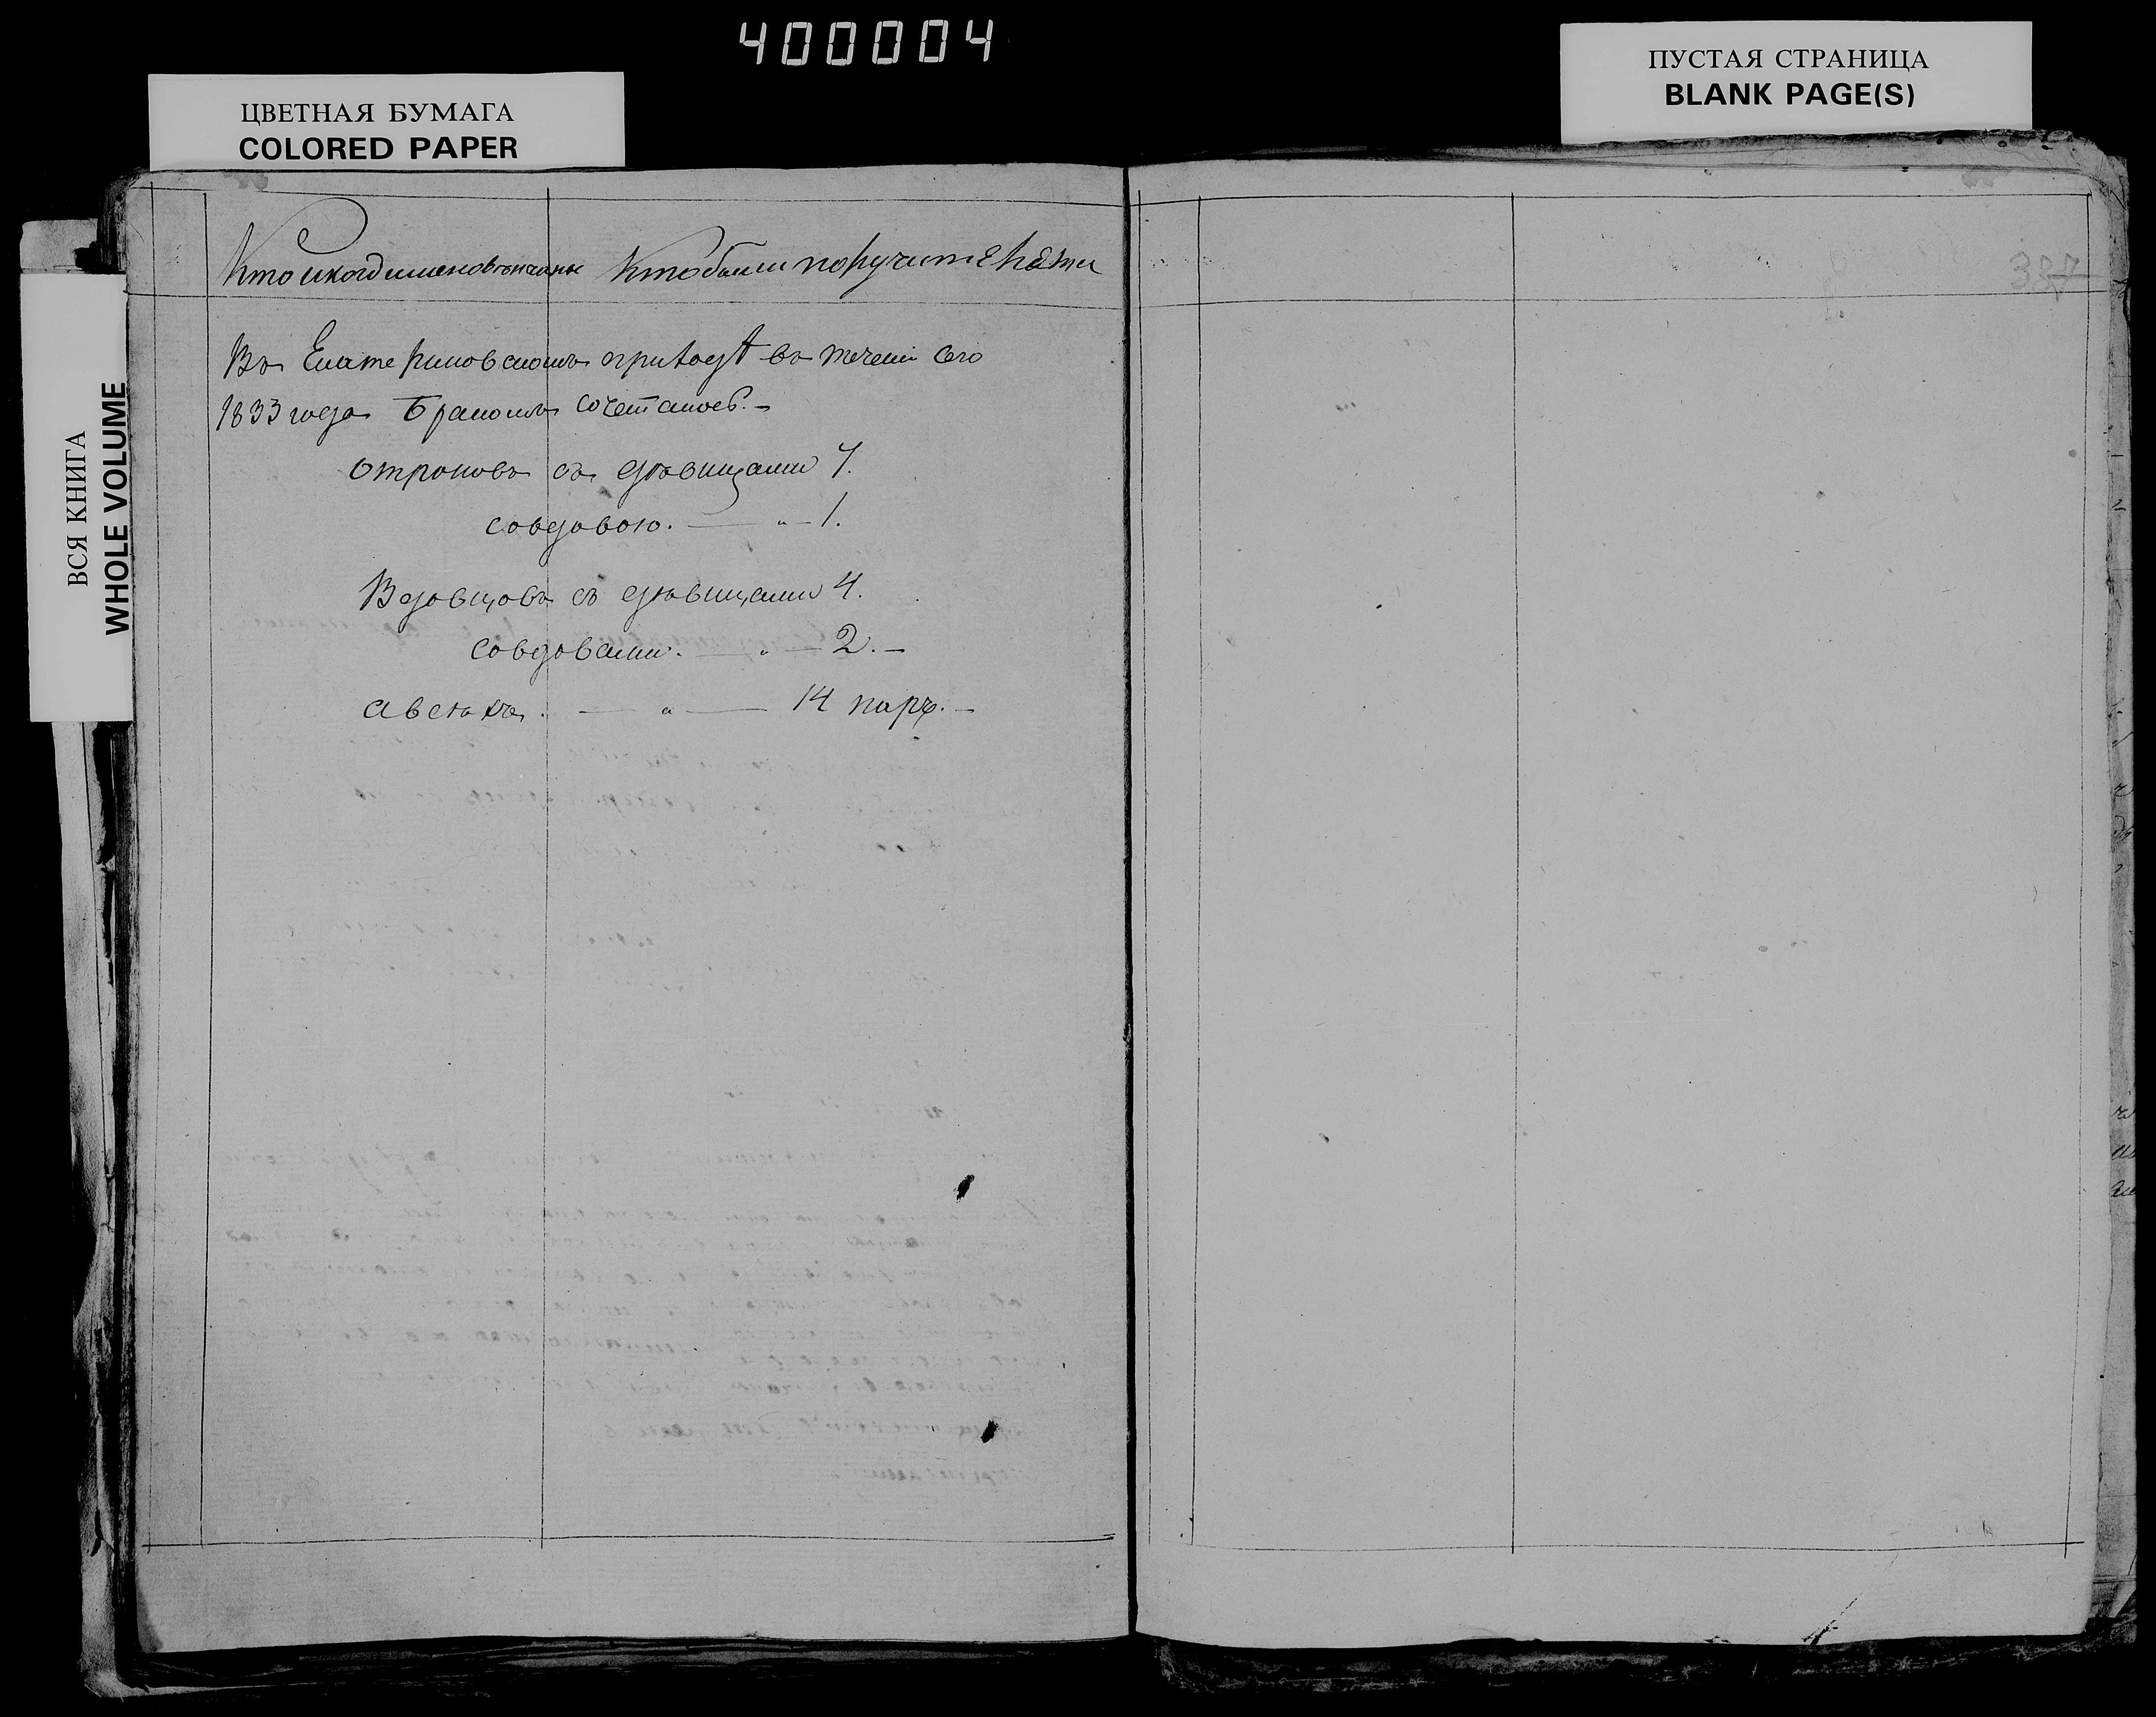 400004
ЦВЕТНАЯ БУМАГА
COLORED PAPER
ПУСТАЯ СТРАНИЦА
BLANK PAGE(S)
ВСЯ КНИГА
WHOLE VOLUME
Кто и когд имено вѣнчаны Кто были поручителями
Въ Екатериновскомъ приходѣ въ течени сего
1833 года Бракомъ сочеталось. –
отроковъ съ дѣвицами 7.
совдовою. — „ — 1.
Вдовцовъ съ дѣвицами 4.
совдовами. — „ — 2. –
а всѣхъ. — „ — 14 паръ. –
387